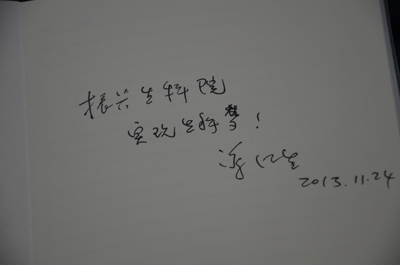 振兴生科院
实现生科梦!
2013.11.24